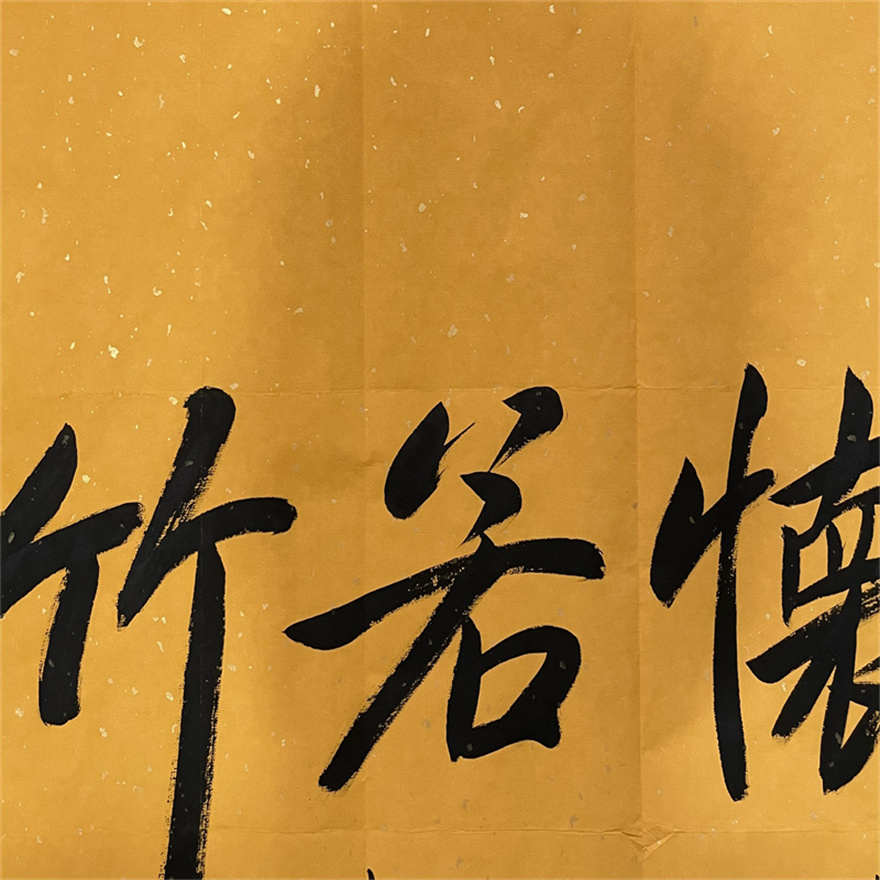 懷若竹